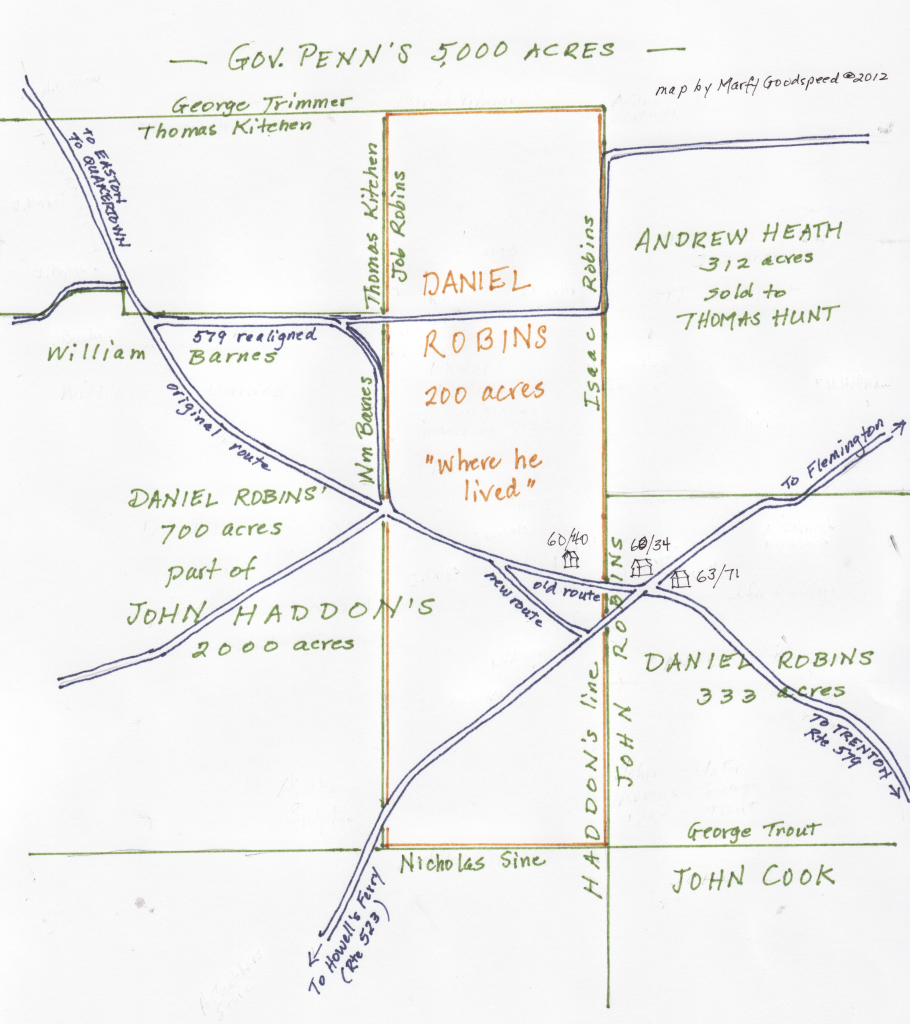 — GOV. PENN'S 5,000 ACRES —
map by Marfy Goodspeed ©2012
George Trimmer
Thomas Kitchen
TO EASTON
TO QUAKERTOWN
Thomas Kitchen
Job Robins
Isaac Robins
ANDREW HEATH
312 acres
sold to
THOMAS HUNT
DANIEL
ROBINS
200 acres
"where he
lived"
579 realigned
William Barnes
Wm Barnes
original route
To Flemington
DANIEL ROBINS'
700 acres
part of
JOHN HADDON'S
2000 acres
60/40
60/34
63/71
old route
new route
HADDON's line
JOHN ROBINS
DANIEL ROBINS
333 acres
TO TRENTON
Rte 579
George Trout
JOHN COOK
Nicholas Sine
To Howell's Ferry
(Rte 523)